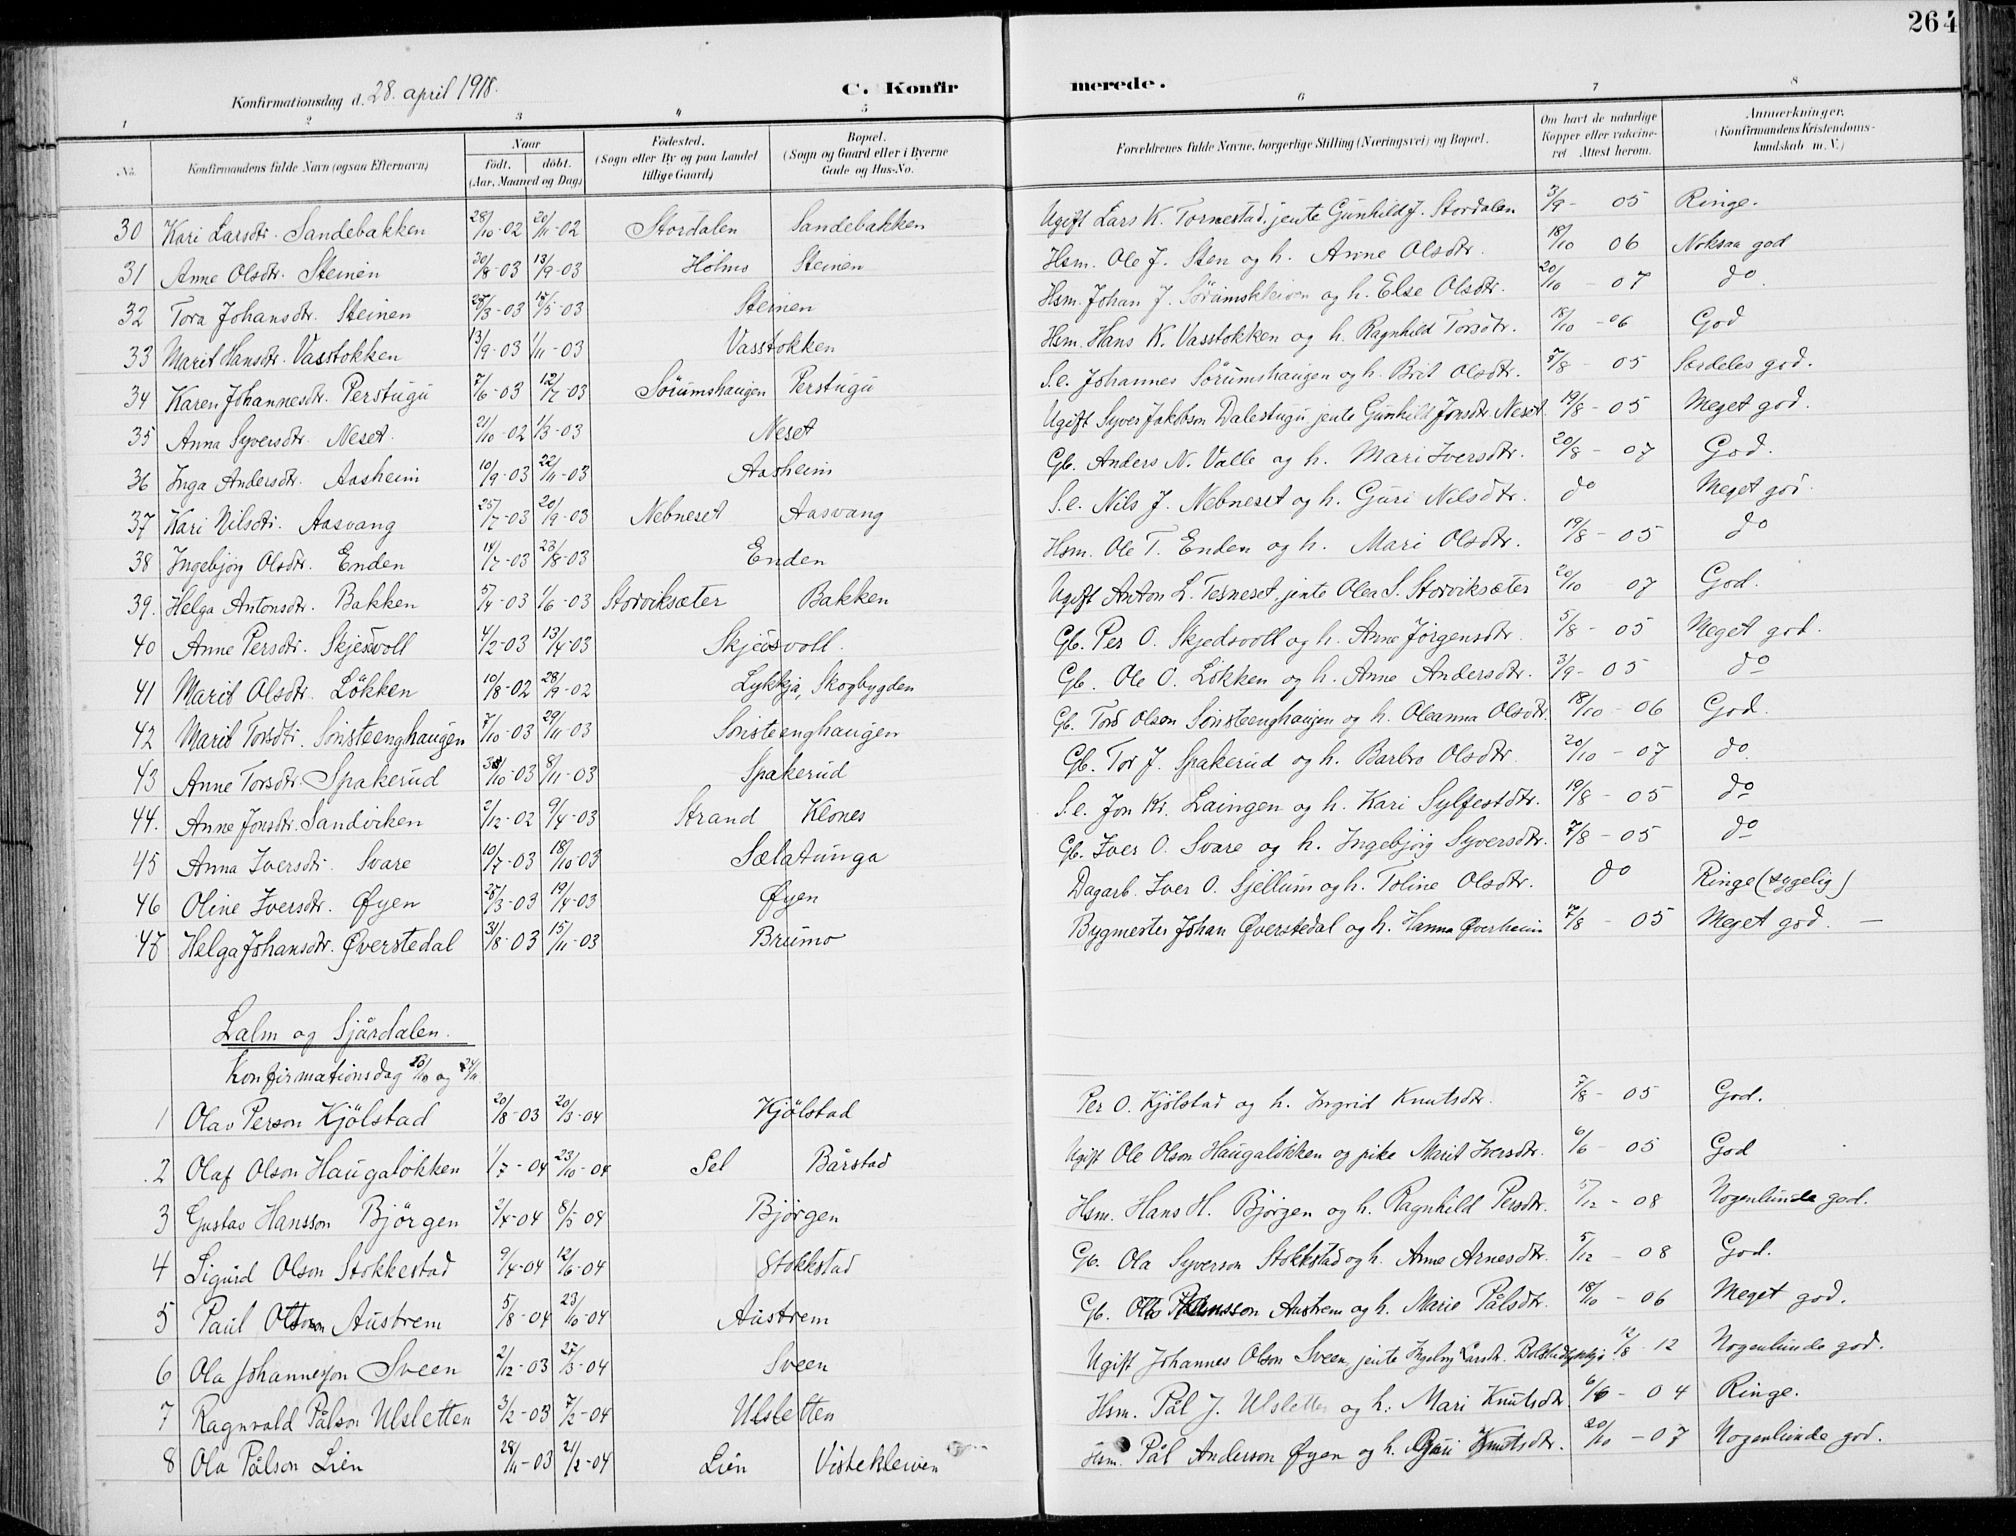 264
Konfirmationsdag d. 28. april 1918. C. Konfir merede.
1 2 3 4 5 6 7 8
No. Konfirmandens fulde Navn (ogsaa Efternavn) Naar født, døbt. (Aar, Maaned og Dag) Fødested. (Sogn eller By og paa Landet tillige Gaard) Bopæl. (Sogn og Gaard eller i Byerne Gade og Hus-No. Forældrenes fulde Navne, borgerlige Stilling (Næringsvei) og Bopæl. Om havt de naturlige Kopper eller vakcineret Attest herom. Anmærkninger. (Konfirmandens Kristendomskundskab m. V.)
30 Kari Larsdtr. Sandebakken 28/10-02 20/11-02 Stordalen Sandebakken Ugift Lars K. Tornestad, jente Gunhild J. Stordalen 3/9 - 05 Ringe.
31 Anne Olsdtr. Steinen 30/8-03 13/9-03 Holmo Steinen Hsm. Ole J. Sten og h. Anne Olsdtr. 18/10 06 Noksaa god
32 Tora Johansdtr. Steinen 28/3-03 17/5-03 Steinen Hsm. Johan J. Sörumskleiven og h. Else Olsdtr. 20/10 - 07 do
33 Marit Hansdtr. Vasstokken 13/9-03 1/11-03 Vasstokken Hsm. Hans K. Vasstokken og h. Ragnhild Torsdtr. 18/10 - 06 God
34 Karen Johannesdtr. Perstugu 7/6-03 12/7-03 Sörumshaugen Perstugu S.e. Johannes Sörumshaugen og h. Brit Olsdtr. 7/8 - 05 Særdeles god.
35 Anna Syversdtr. Neset. 21/10-02 1/3-03 Neset Ugift Syver Jakobson Dalestugu, jente Gunhild Jonsdtr. Neset 19/8 - 05 Meget god.
36 Inga Andersdtr. Aasheim 10/9-03 22/11-03 Aasheim Gb. Anders N. Valle og h. Mari Iversdtr. 20/8 - 07 God.
37 Kari Nilsdtr. Aasvang 25/7-03 20/9-03 Nebneset Aasvang S.e. Nils J. Nebneset og h. Guri Nilsdtr. do Meget god.
38 Ingebjörg Olsdtr. Enden 14/7-03 23/8-03 Enden Hsm. Ole T. Enden og h. Mari Olsdtr. 19/8 - 05 do
39. Helga Antonsdtr. Bakken 5/4-03 1/6-03 Storviksæter Bakken Ugift Anton L. Tesneset, jente Olea S. Storviksæter 20/10 - 07 God.
40 Anne Persdtr. Skjedsvoll 4/2-03 13/4-03 Skjedsvoll. Gb. Per O. Skjedsvoll og h. Anne Jörgensdtr. 5/8 - 05 Meget god.
41 Marit Olsdtr. Lökken 10/8-02 28/9-02 Lykkja, Skogbygden Gb. Ole O. Lökken og h. Anne Andersdtr. 3/9 - 05 do
42 Marit Torsdtr. Sönsteenghaugen 7/10-03 29/11-03 Sönsteenghaugen Gb. Tord Olson Sönsteenghaugen og h. Oleanna Olsdtr. 18/10 - 06 God.
43 Anne Torsdtr. Spakerud /10-03 8/11-03 Spakerud Gb. Tor J. Spakerud og h. Barbro Olsdtr. 20/10 - 07 do
44. Anne Jonsdtr. Sandviken 2/12-02 9/4-03 Strand Klones S.e. Jon Kr. Laingen og h. Kari Sylfestdtr. 19/8 - 05 do
45 Anna Iversdtr. Svare 10/7-03 18/10-03 Sælatunga Gb. Iver O. Svare og h. Ingebjörg Syversdtr. 7/8 - 05 do
46 Oline Iversdtr. Øyen 28/3-03 19/4-03 Øyen Dagarb. Iver O. Sjellum og h. Toline Olsdtr. do Ringe (sygelig)
47 Helga Johansdtr. Øverstedal 31/8-03 15/11-03 Brumo Bygmester Johan Øverstedal og h. Hanna Øverheim 7/8 - 05 Meget god. —
Lalm og Sjårdalen.
Konfirmationsdag /10 og 24/11
1 Olav Person Kjölstad 20/8-03 20/3-04 Kjölstad Per O. Kjölstad og h. Ingrid Knutsdtr. 7/8 - 05 God.
2 Olaf Olson Haugalökken 1/7-04 23/10-04 Sel Bårstad Ugift Ole Olson Haugalökken og pike Marit Iversdtr. 6/6 - 05 God
3 Gustav Hansson Björgen 2/4-04 8/5 04 Björgen Hsm. Hans H. Björgen og h. Ragnhild Persdtr. 5/12 - 08 Nogenlunde god.
4 Sigurd Olson Stokkestad 9/4-04 12/6-04 Stokkstad Gb. Ola Syverson Stokkstad og h. Anne Arnesdtr. 5/12 - 08 God.
5 Paul Olson Austrem 5/8-04 23/10-04 Austrem Gb. Ola Hansson Austrem og h. Marie Pålsdtr. 18/10 - 06 Meget god.
6 Ola Johanneson Sveen 2/12-03 27/3-04 Sveen Ugift Johannes Olson Sveen, jente Ingebrig Larsdtr. 12/8 - 12 Nogenlunde god.
7 Ragnvald Pålson Ulsletten 3/2-03 7/2-04 Ulsletten Hsm. Pål J. Ulsletten og h. Mari Knutsdtr. 6/6 - 04 Ringe.
8 Ola Pålson Lien 28/11-03 21/2-04 Lien Vistekleiven Hsm. Pål Anderson Øyen og h. Guri Knutsdtr. 20/10 - 07 Nogenlunde god.